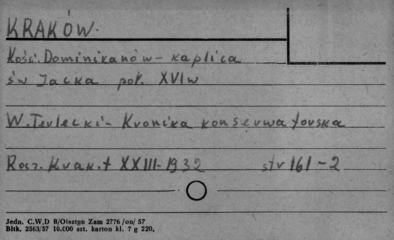 KRAKÓW.
Kość. Dominikanów - kaplica
św Jacka poł. XVI w
W. Terlecki - Kronika konserwatorska
Rocz. Krak. t XXIII - 1932 str 161 - 2
Jedn. C.W.D 8/Olsztyn Zam 2776 /on/ 57
Bltk. 2563/57 10.000 szt. karton kl. 7 g 220,